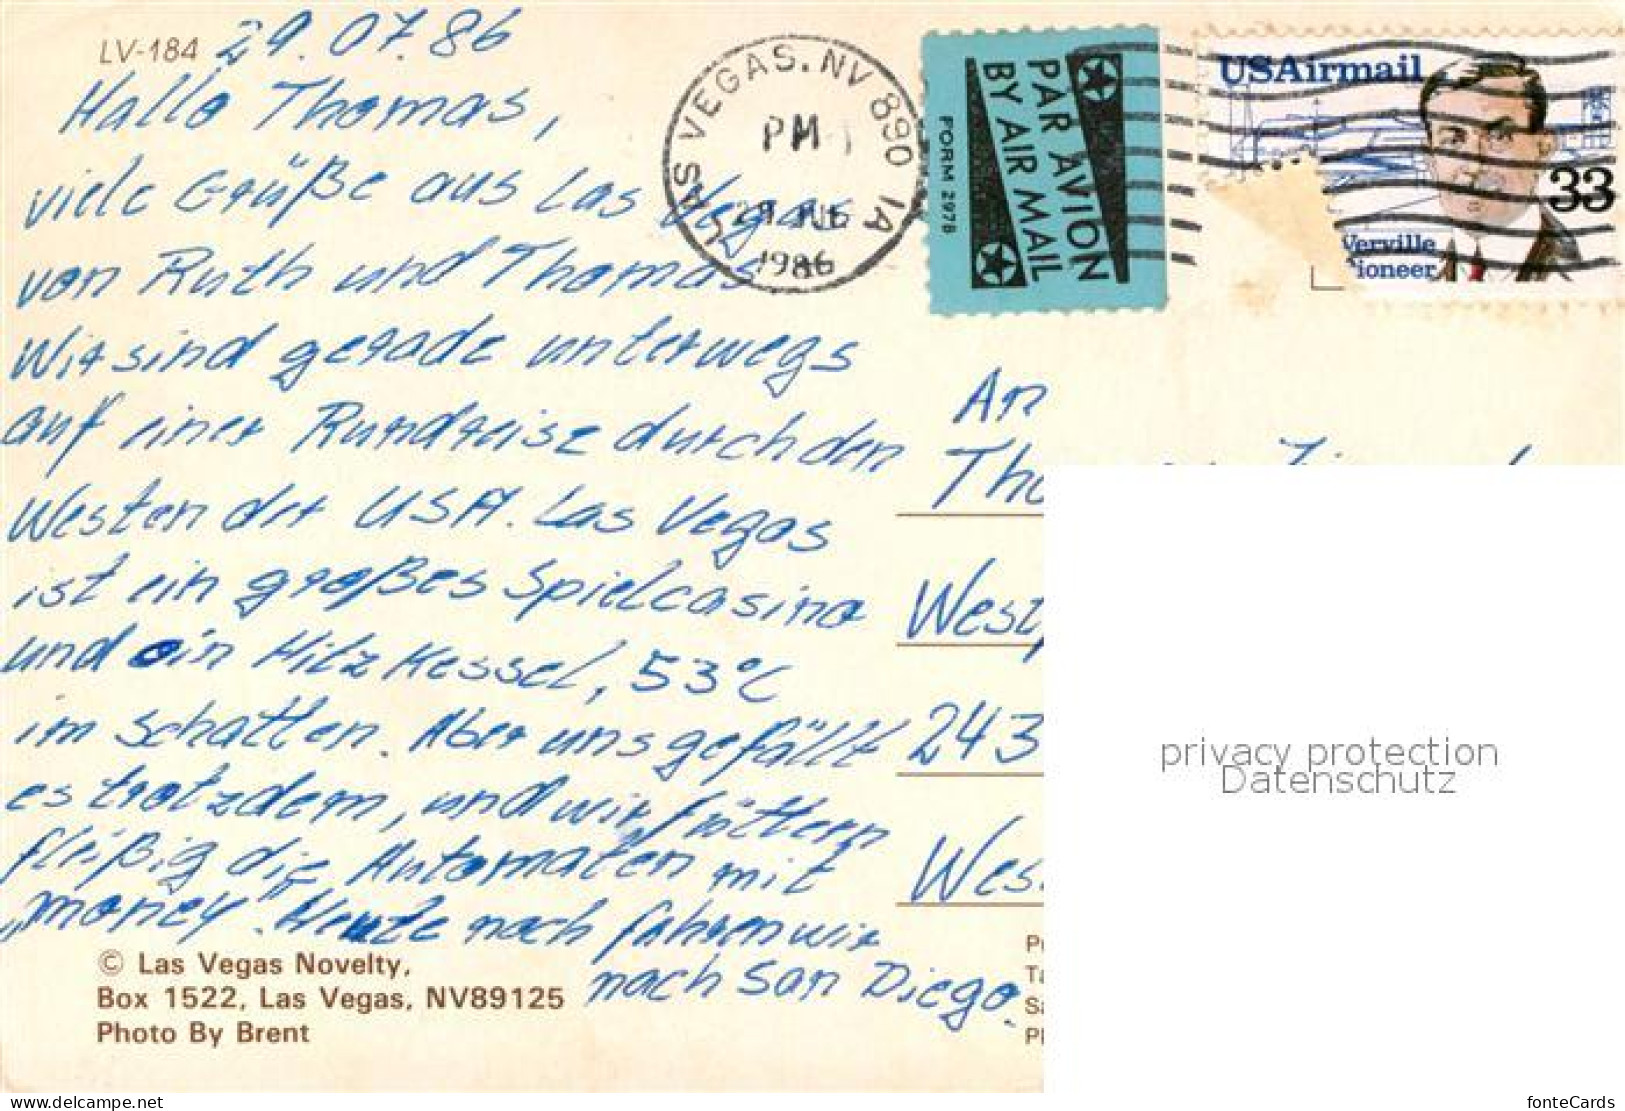 LV-184 29.07.86
Hallo Thomas,
viele Grüße aus Las Vegas
von Ruth und Thomas
Wir sind gerade unterwegs
auf einer Rundreise durch den
Westen der USA. Las Vegas
ist ein großes Spielcasino
und ein Hitzkessel, 53°C
im Schatten. Aber uns gefällt
es trotzdem, und wir füttern
fleißig die Automaten mit
„money". Heute noch fahren wir
nach San Diego.
© Las Vegas Novelty,
Box 1522, Las Vegas, NV89125
Photo By Brent
LAS VEGAS, NV 890 1A
PM
1986
PAR AVION
BY AIR MAIL
FORM 2978
USAirmail
33
Verville
ioneer
An
Tho
West
243
Wes
P
Ta
Sa
Pl
privacy protection
Datenschutz
www.delcampe.net
fonteCards